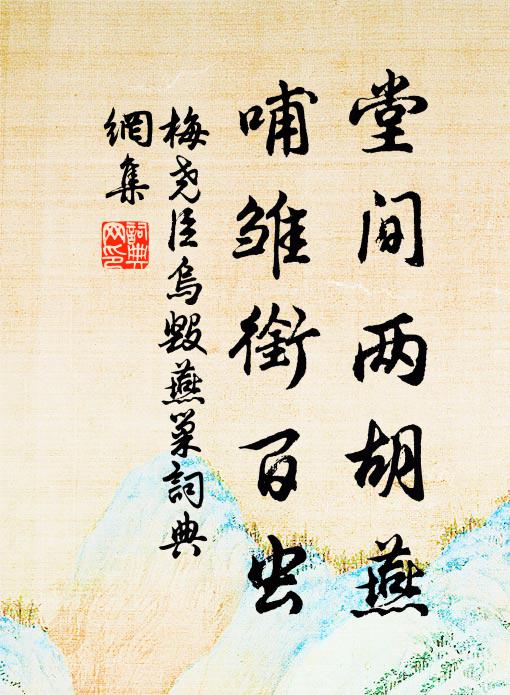 堂间两胡燕
哺雏衔百虫
梅尧臣乌毁燕巢词典
網集
詞典网印